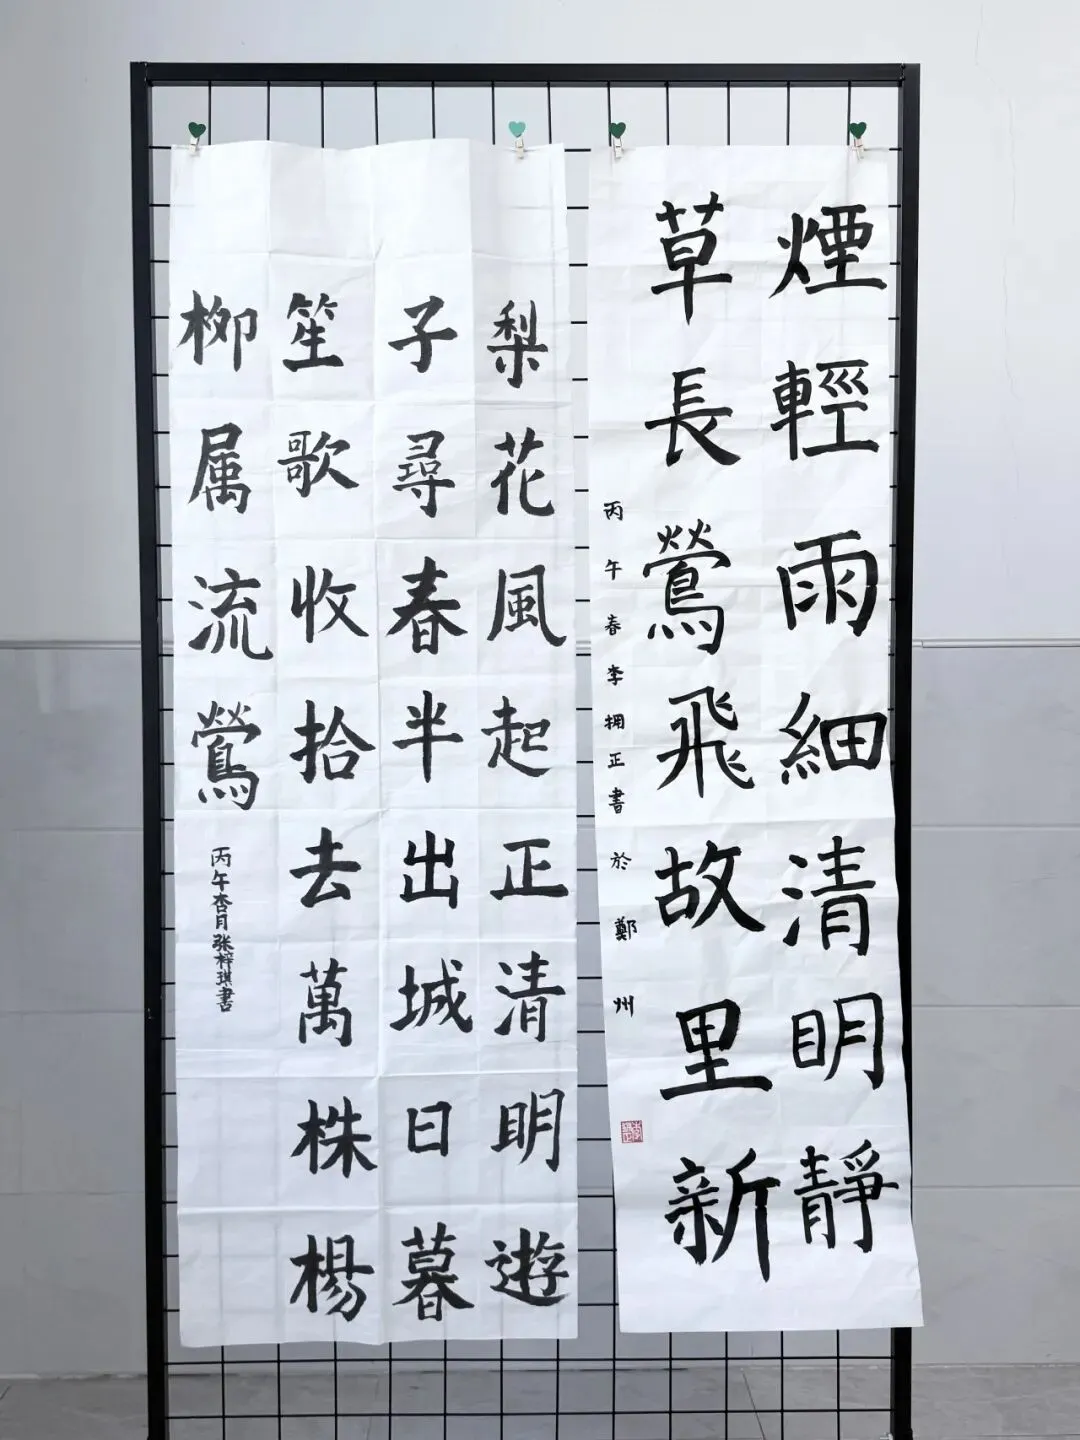 煙輕雨細清明靜
草長鶯飛故里新
丙午春李拥正書於鄭州
梨花風起正清明遊
子尋春半出城日暮
笙歌收拾去萬株楊
柳属流鶯
丙午杏月张梓琪書